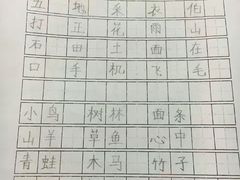 五 地 采 衣 伯
打 正 花 雨 山
石 田 土 面 在
口 手 机 飞 毛
小鸟 树林 面条
山羊 草鱼 心中
青蛙 木马 竹子